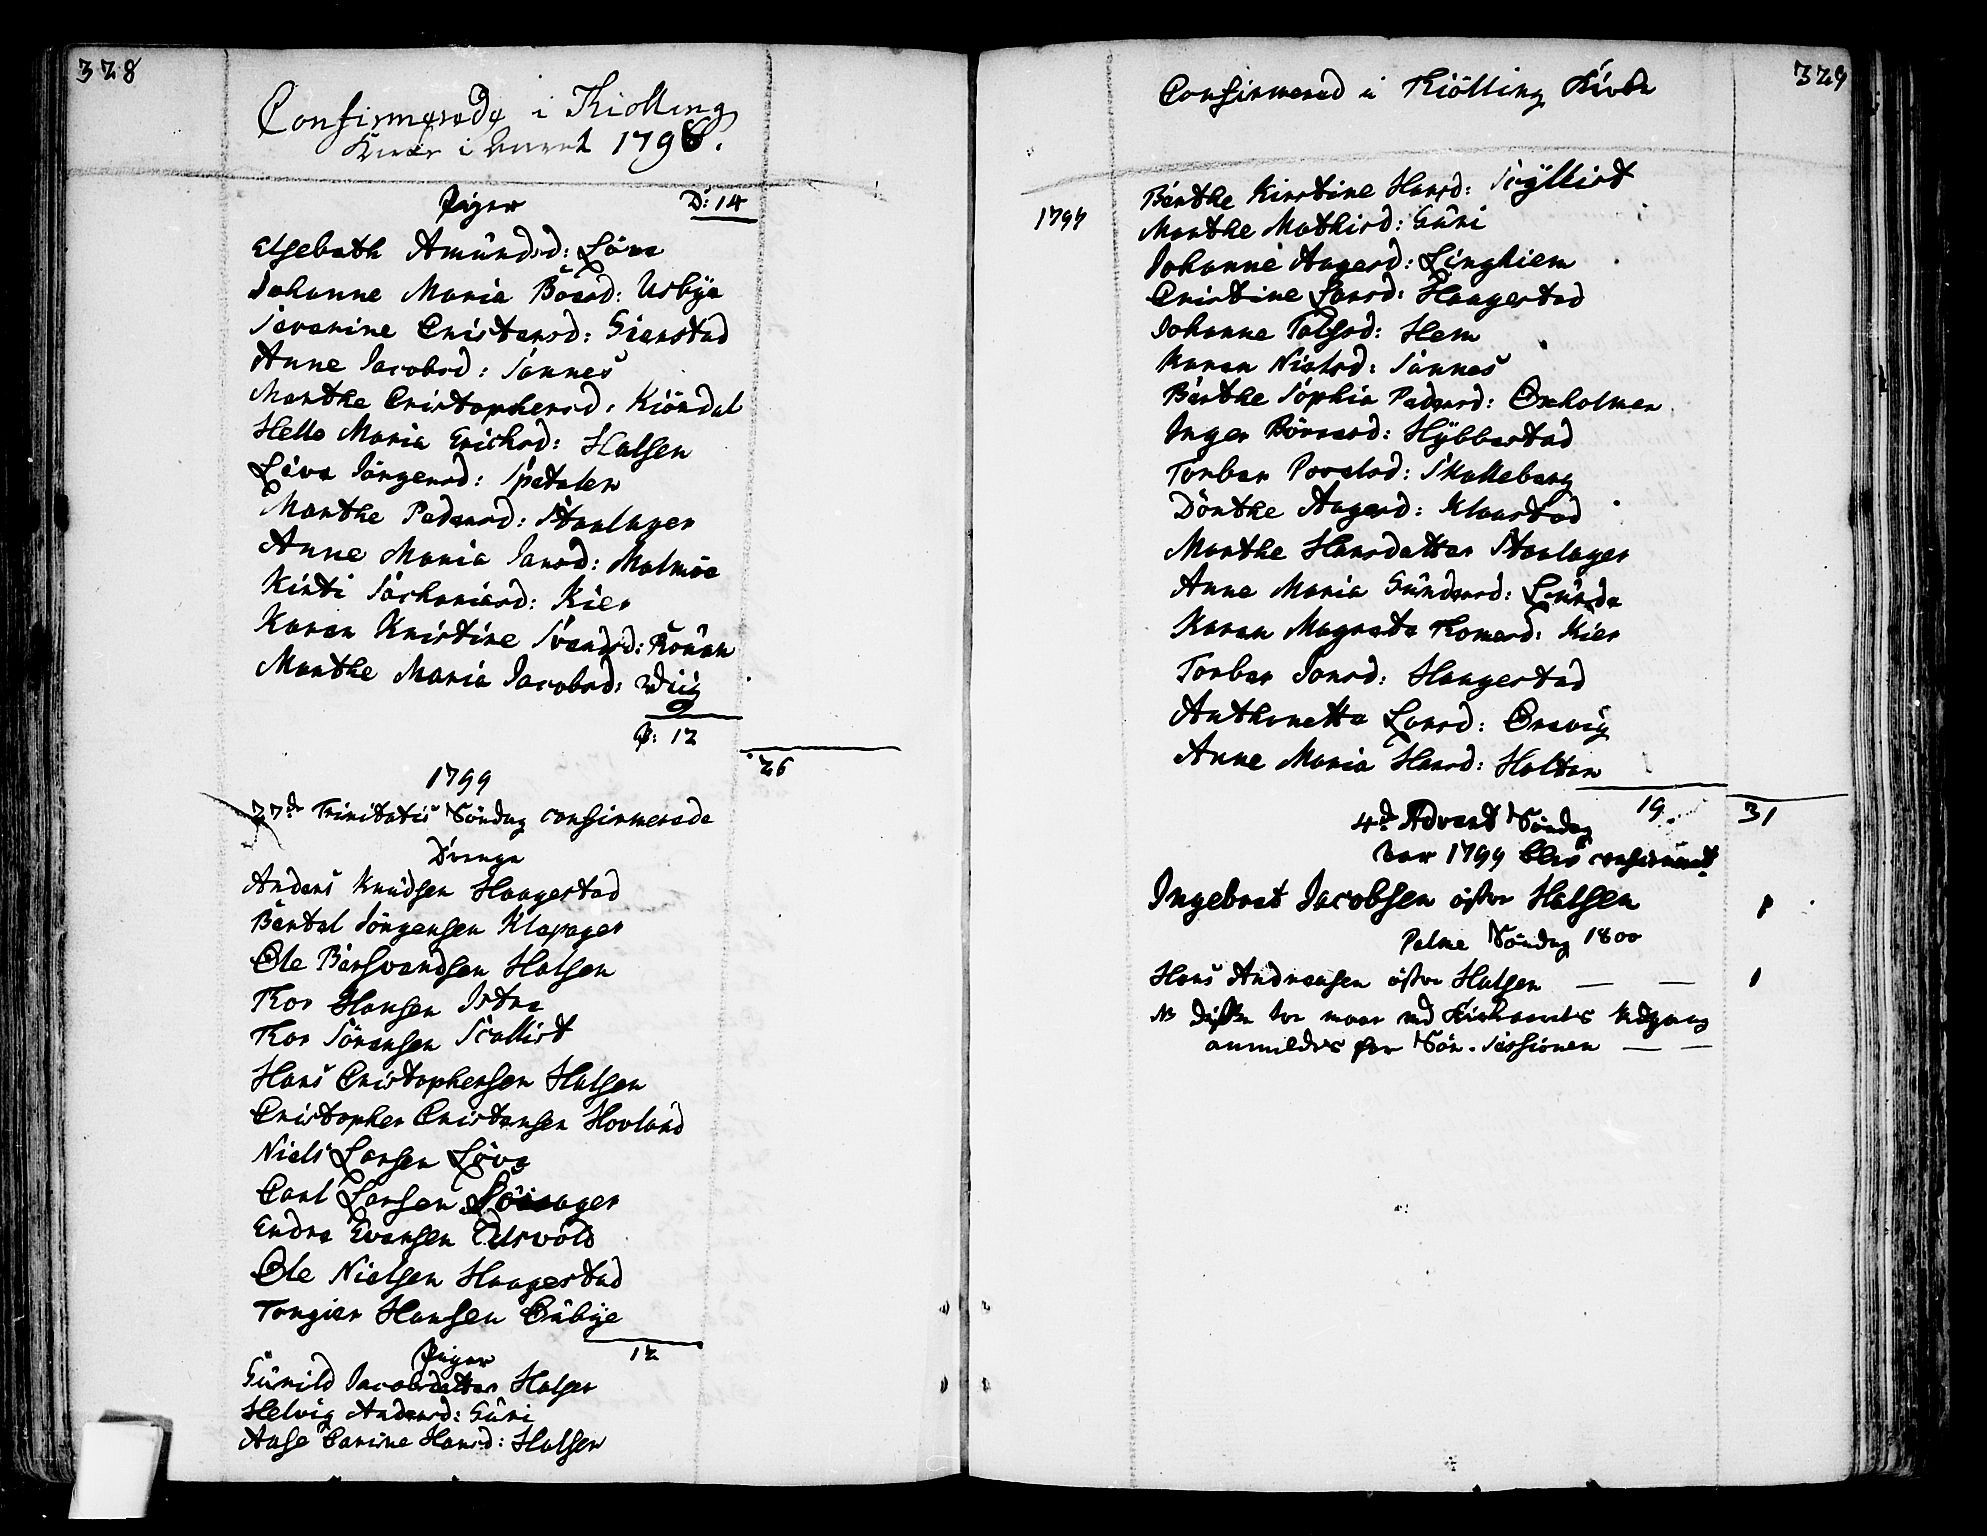 328
Confirmerede i Kiölling
Kirke i Aaret 1798.
Piger D: 14
Elsebeth Amûndsd: Löve
Johanne Maria Böesd: Usbÿe
Severine Cristensd: Gierstad
Anne Jacobsd: Sannes
Marthe Cristophersd: Kiöndal
Helle Maria Erichsd: Halsen
Live Jörgensd: Spetalen
Marthe Pedersd: Stenlager
Anne Maria Jansd: Malmöe
Kirsti Sachariasd: Kier
Karen Kristine Svendsd: Rönen
Marthe Maria Jacobsd: Wiig
P: 12
26
1799
27de Trinitatis Söndag confirmerede
Drenge
Anders Knudsen Haagestad
Bertel Jörgensen Klepager
Ole Bersvendsen Halsen
Thor Hansen Istre
Thor Sörensen Scallist
Hans Cristophersen Halsen
Cristopher Cristensen Hovland
Niels Larsen Löve
Carl Larsen
Endre Evensen
Ole Nielsen Haagestad
Torgier Hansen Ôûbÿe
12
Piger
Gûnild Jacobsdatter Halsen
Helvig Andersd: Gûri
Aase Carine Hansd: Halsen
329
Confirmered i Kiölling Kirke
1799
Berthe Kirstine Hansd: Sÿllist
Marthe Mathisd: Gûri
Johanne Aagesd: Linghiem
Cristine Larsd: Haagestad
Johanne Tolfsd: Hem
Karen Nielsd: Sannes
Berthe Sophia Pedersd: Oxholmen
Inger Börresd: Hÿbbestad
Torbor Povelsd: Skalleberg
Dorthe Aagesd: Klaastad
Marthe Hansdatter Stenlager
Anne Maria Gûndersd: Lûnde
Karen Magrete Thomesd: Kier
Torbor Jonsd: Haagestad
Anthonette Larsd: Ørevig
Anne Maria Hansd: Holtan
19. 31
4de Advent Söndag
1799 blev confirmeret
Ingebret Jacobsen öster Halsen 1
Palme Söndag 1800
Hans Andreasen öster Halsen — — 1
NB Disse maae ved Kirkeaarets Udgang
anmeldes for Söe-Sessionen — —